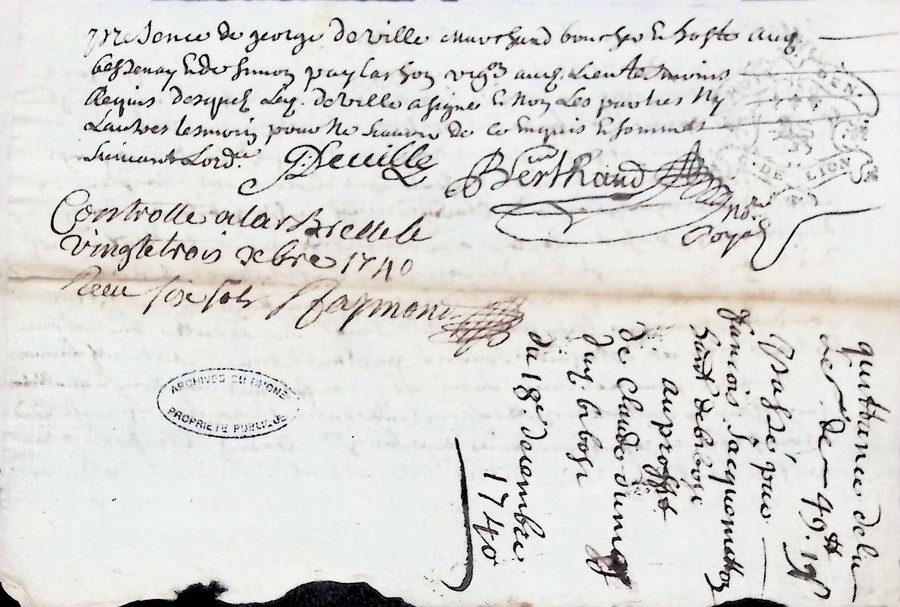 presence de george deville marchand boucher & hoste aud.
bessenay & de simon paylachon vigⁿ aud. lieu tesmoins
Requis desquels led. deville a signé & non les parties ny
Lautres tesmoin pour ne scavoir de ce enquis & sommés
suivant Lord.ᶜᵉ G. Deville Berthaud noʳᵉ
Royal
Controllé a larBrelle le
vingt trois xbre 1740
Receu six sols Raymond
ARCHIVES DU RHONE
PROPRIÉTÉ PUBLIQUE
DE LION
quittance de la
de 49ᵗᵗ 19ˢ
Passé par
françois Jacquemetton
de
Au proffit
de Claude
du 18ᵉ décembre
1740